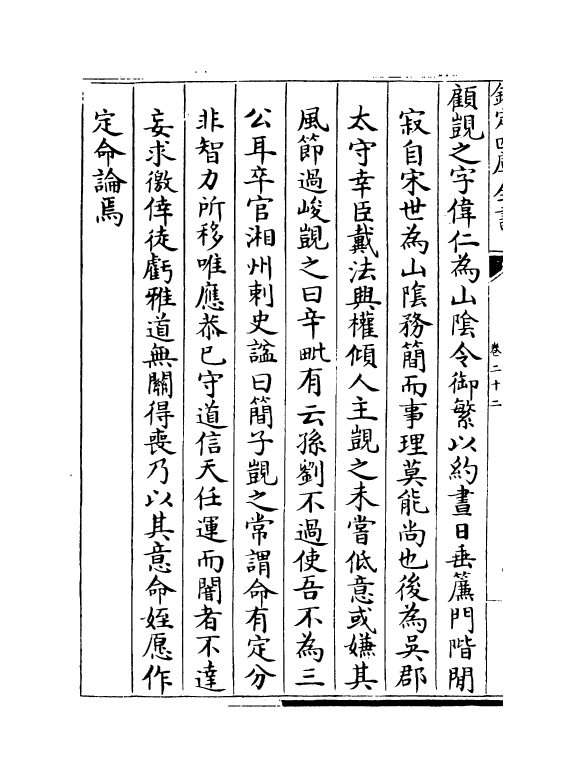 顧覬之字偉仁為山陰令御繁以約晝日垂簾門階閒
寂自宋世為山陰務簡而事理莫能尚也後為吳郡
太守幸臣戴法興權傾人主覬之未嘗低意或嫌其
風節過峻覬之曰辛毗有云孫劉不過使吾不為三
公耳卒官湘州刺史諡曰簡子覬之常謂命有定分
非智力所移唯應恭已守道信天任運而闇者不達
妄求徼倖徒虧雅道無關得喪乃以其意命姪愿作
定命論焉
欽定四庫全書
卷二十二